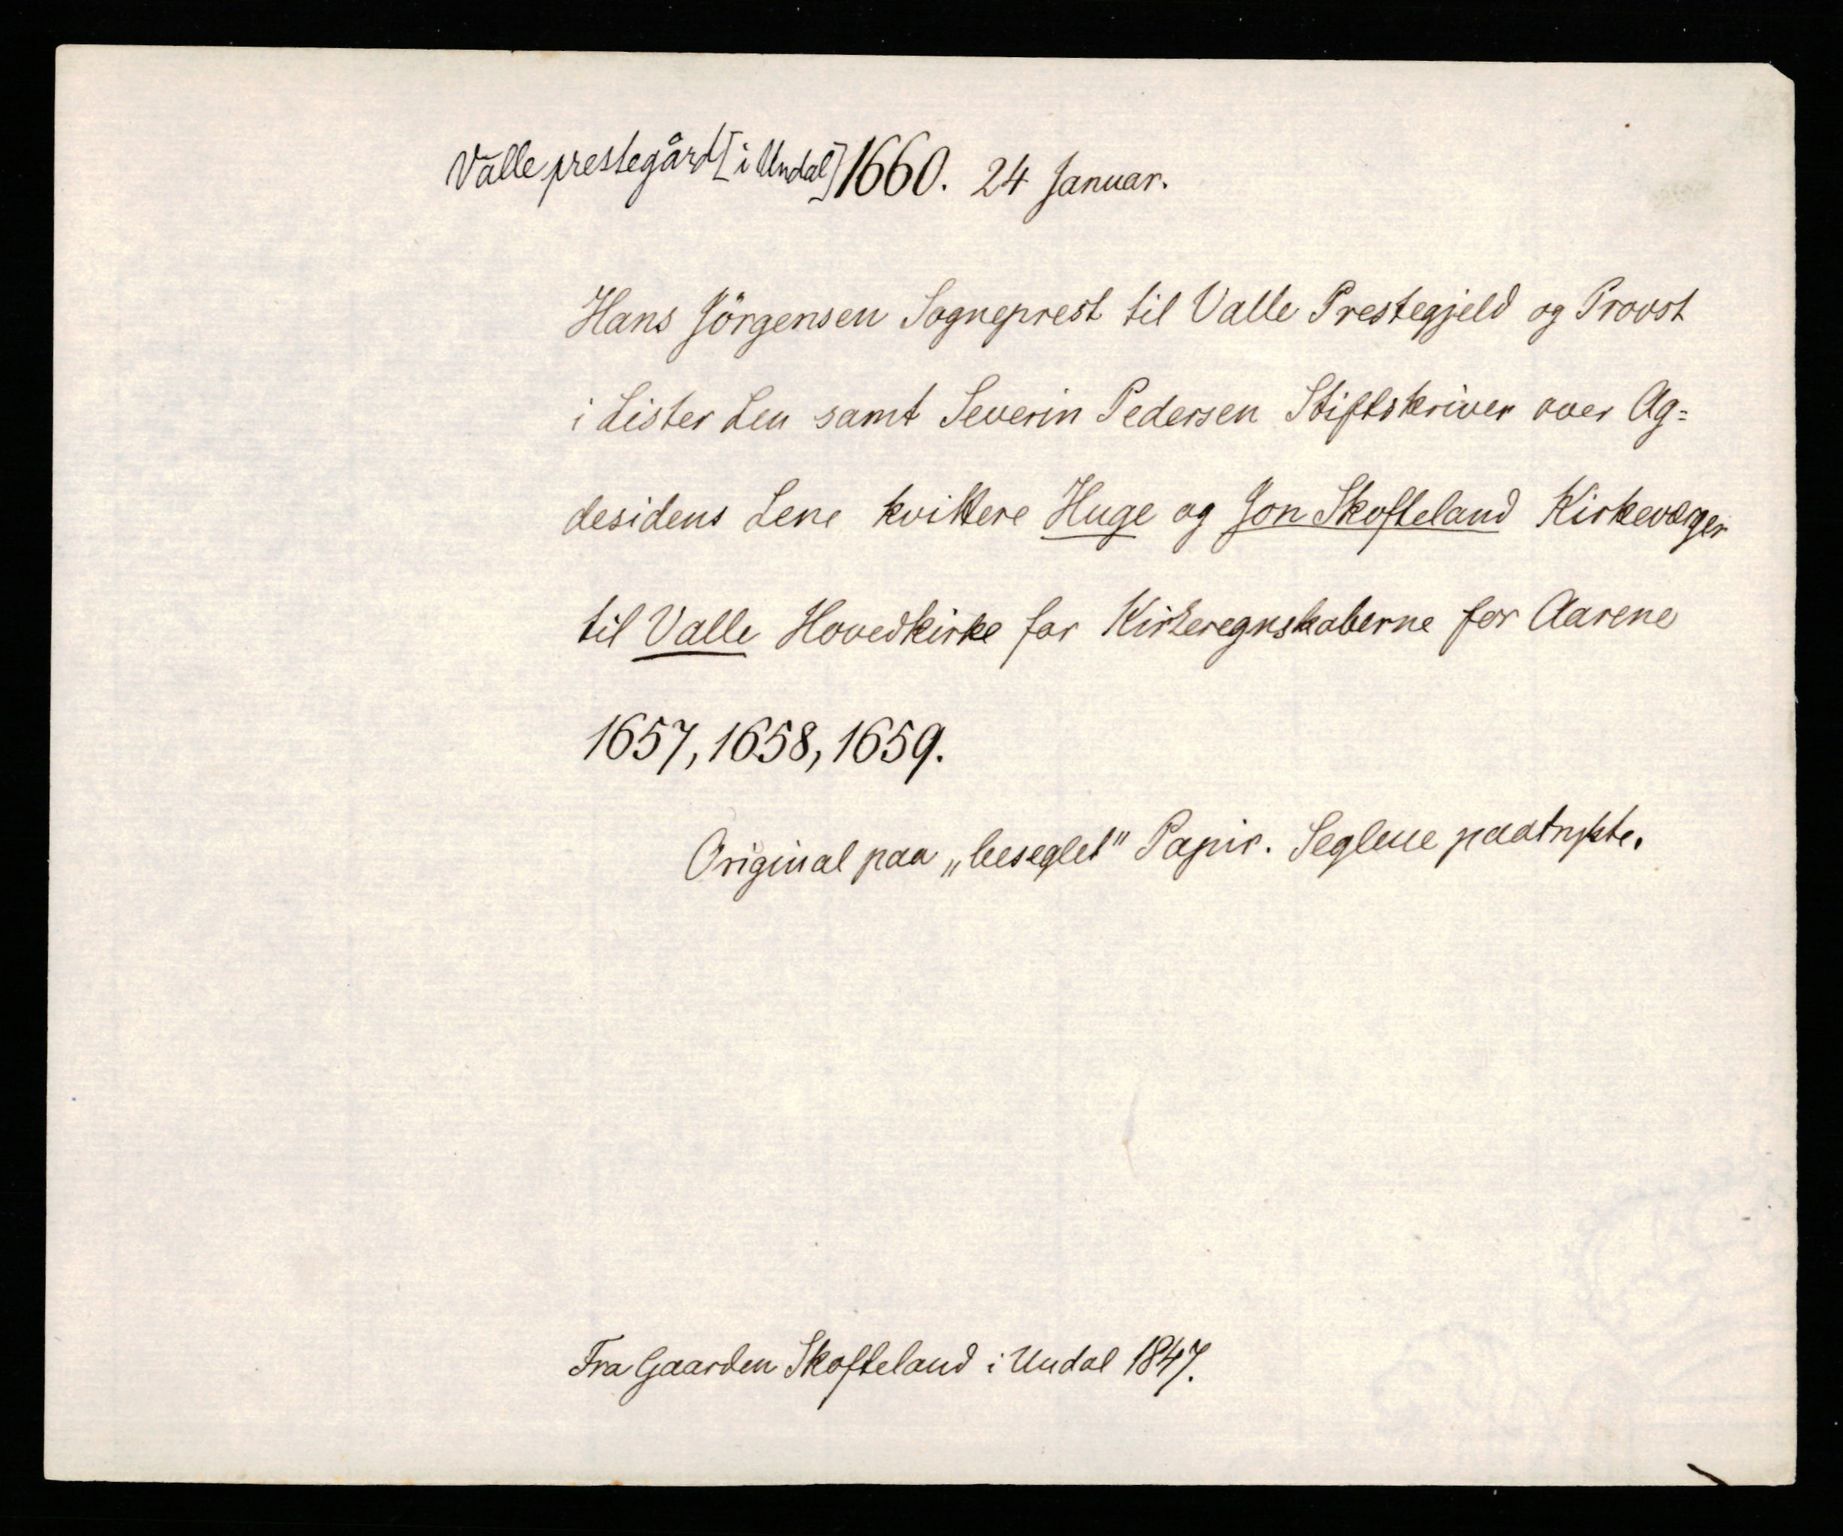 Valle prestegård [i Undal] 1660. 24 Januar.
Hans Jörgensen Sogneprest til Valle Prestegjeld og Provst
i Lister Len samt Severin Pedersen Stiftskriver over Ag=
desidens Lene kvittere Huge og Jon Skofteland Kirkeværger
til Valle Hovedkirke for Kirkeregnskaberne for Aarene
1657, 1658, 1659.
Original paa „beseglet" Papir. Seglene paatrykte.
Fra Gaarden Skofteland i Undal 1847.